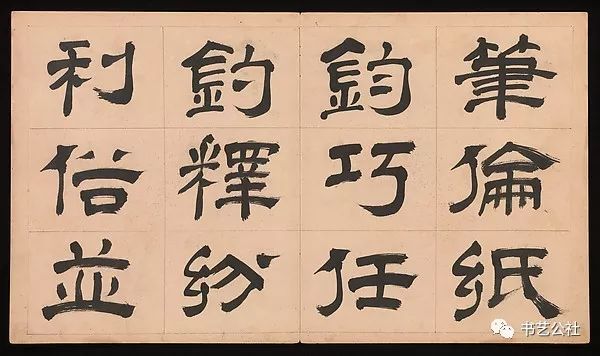 筆倫紙
鈞巧任
釣釋紛
利俗並
书艺公社